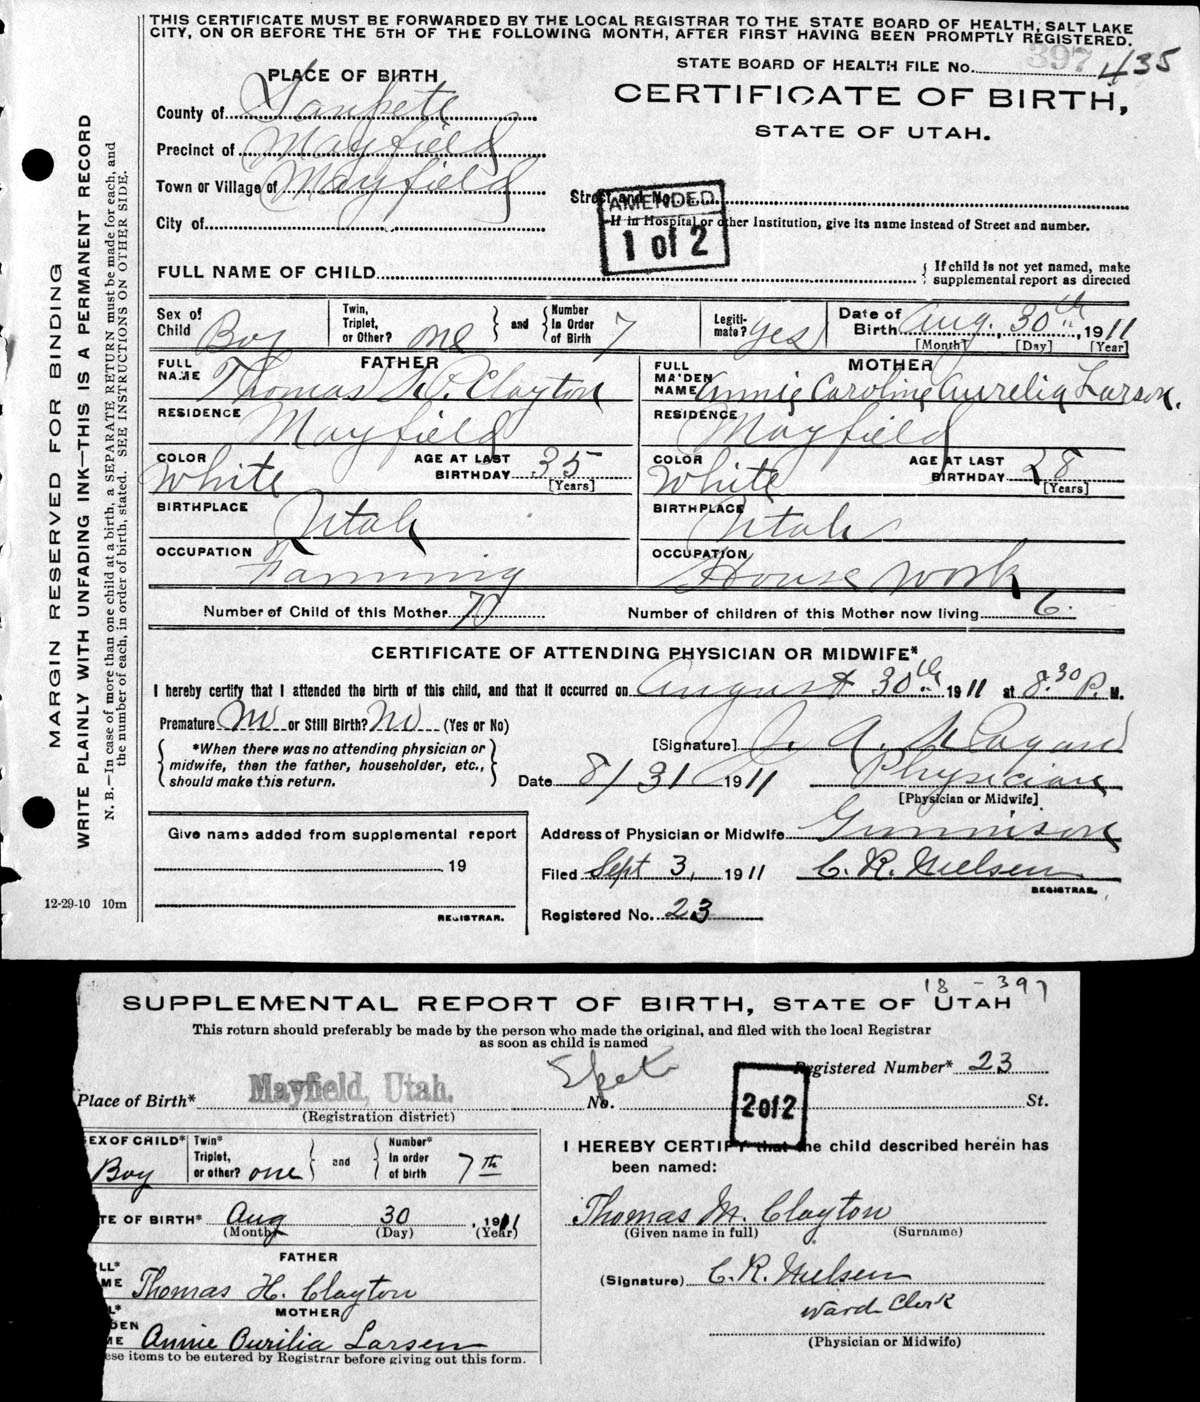 THIS CERTIFICATE MUST BE FORWARDED BY THE LOCAL REGISTRAR TO THE STATE BOARD OF HEALTH, SALT LAKE
CITY, ON OR BEFORE THE 5TH OF THE FOLLOWING MONTH, AFTER FIRST HAVING BEEN PROMPTLY REGISTERED.
397
STATE BOARD OF HEALTH FILE No. 435
PLACE OF BIRTH
CERTIFICATE OF BIRTH,
STATE OF UTAH.
County of Sanpete
Precinct of Mayfield
Town or Village of Mayfield
City of
Street and No.
If in Hospital or other Institution, give its name instead of Street and number.
AMENDED
1 of 2
FULL NAME OF CHILD { If child is not yet named, make
supplemental report as directed
Sex of Child Boy
Twin, Triplet, or Other? one } and { Number In Order of Birth 7
Legiti-mate? yes
Date of Birth Aug. 30th 1911
[Month] [Day] [Year]
FATHER
FULL NAME Thomas H. Clayton
RESIDENCE Mayfield
COLOR White AGE AT LAST BIRTHDAY 35
[Years]
BIRTHPLACE Utah
OCCUPATION Farming
MOTHER
FULL MAIDEN NAME Annie Caroline Aurelia Larson.
RESIDENCE Mayfield
COLOR White AGE AT LAST BIRTHDAY 28
[Years]
BIRTHPLACE Utah
OCCUPATION House work
Number of Child of this Mother 7
Number of children of this Mother now living 6.
CERTIFICATE OF ATTENDING PHYSICIAN OR MIDWIFE*
I hereby certify that I attended the birth of this child, and that it occurred on August 30th 1911 at 8:30 P. M.
Premature No or Still Birth? No (Yes or No)
{ *When there was no attending physician or
midwife, then the father, householder, etc.,
should make this return. }
[Signature] J. A. Hagan
Date 8/31 1911 Physician
[Physician or Midwife]
Give name added from supplemental report
19
REGISTRAR.
Address of Physician or Midwife Gunnison
Filed Sept 3, 1911 C. R. Nielsen
REGISTRAR.
Registered No. 23
MARGIN RESERVED FOR BINDING
WRITE PLAINLY WITH UNFADING INK—THIS IS A PERMANENT RECORD
N. B.—In case of more than one child at a birth, a SEPARATE RETURN must be made for each, and
the number of each, in order of birth, stated. SEE INSTRUCTIONS ON OTHER SIDE.
12-29-10 10m
18 - 397
SUPPLEMENTAL REPORT OF BIRTH, STATE OF UTAH
This return should preferably be made by the person who made the original, and filed with the local Registrar
as soon as child is named
Registered Number* 23
Place of Birth* Mayfield, Utah. No. St.
(Registration district)
2 of 2
SEX OF CHILD* Boy
Twin* Triplet, or other? one } and { Number* In order of birth 7th
DATE OF BIRTH* Aug 30, 1911
(Month) (Day) (Year)
FATHER
Thomas H. Clayton
MOTHER
Annie Aurilia Larsen
ese items to be entered by Registrar before giving out this form.
I HEREBY CERTIFY that the child described herein has
been named:
Thomas M. Clayton
(Given name in full) (Surname)
(Signature) C. R. Nielsen
Ward Clerk
(Physician or Midwife)